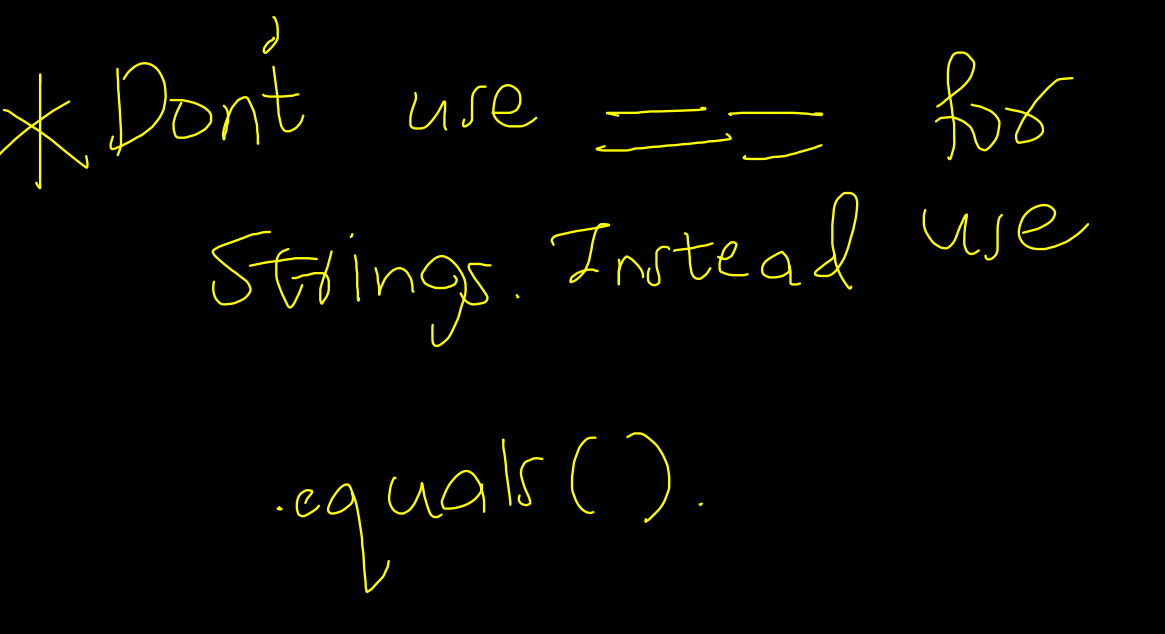 * Don't use == for
Strings. Instead use
.equals().